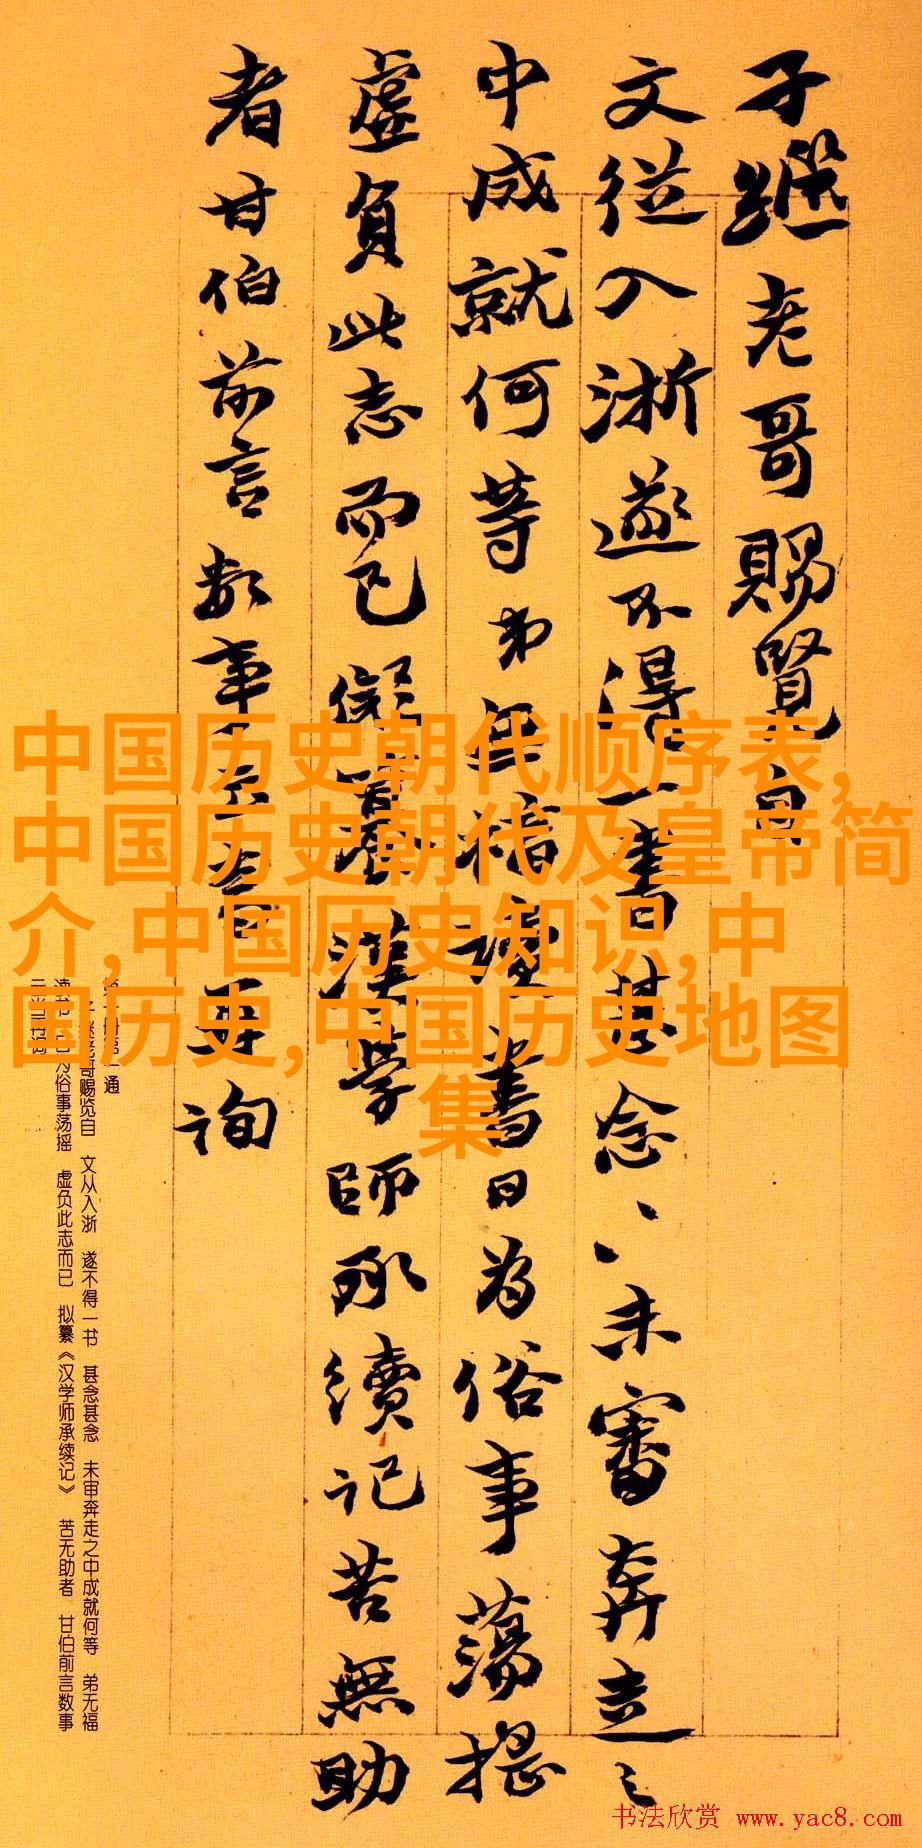 子继老哥賜覧自
文從入浙遂不得一書甚念〻未審奔走之
中成就何等弟無福讀書日為俗事蕩摇
虚負此志而已儗纂漢學師承續記苦無助
者甘伯前言數事
再詢
中国历史朝代顺序表,
中国历史朝代及皇帝简
介,中国历史知识,中
国历史,中国历史地图
集
通
赐览自 文从入浙 遂不得一书 甚念甚念 未审奔走之中成就何等 弟无福
为俗事荡摇 虚负此志而已 拟纂《汉学师承续记》 苦无助者 甘伯前言数事
书法欣赏 www.yac8.com